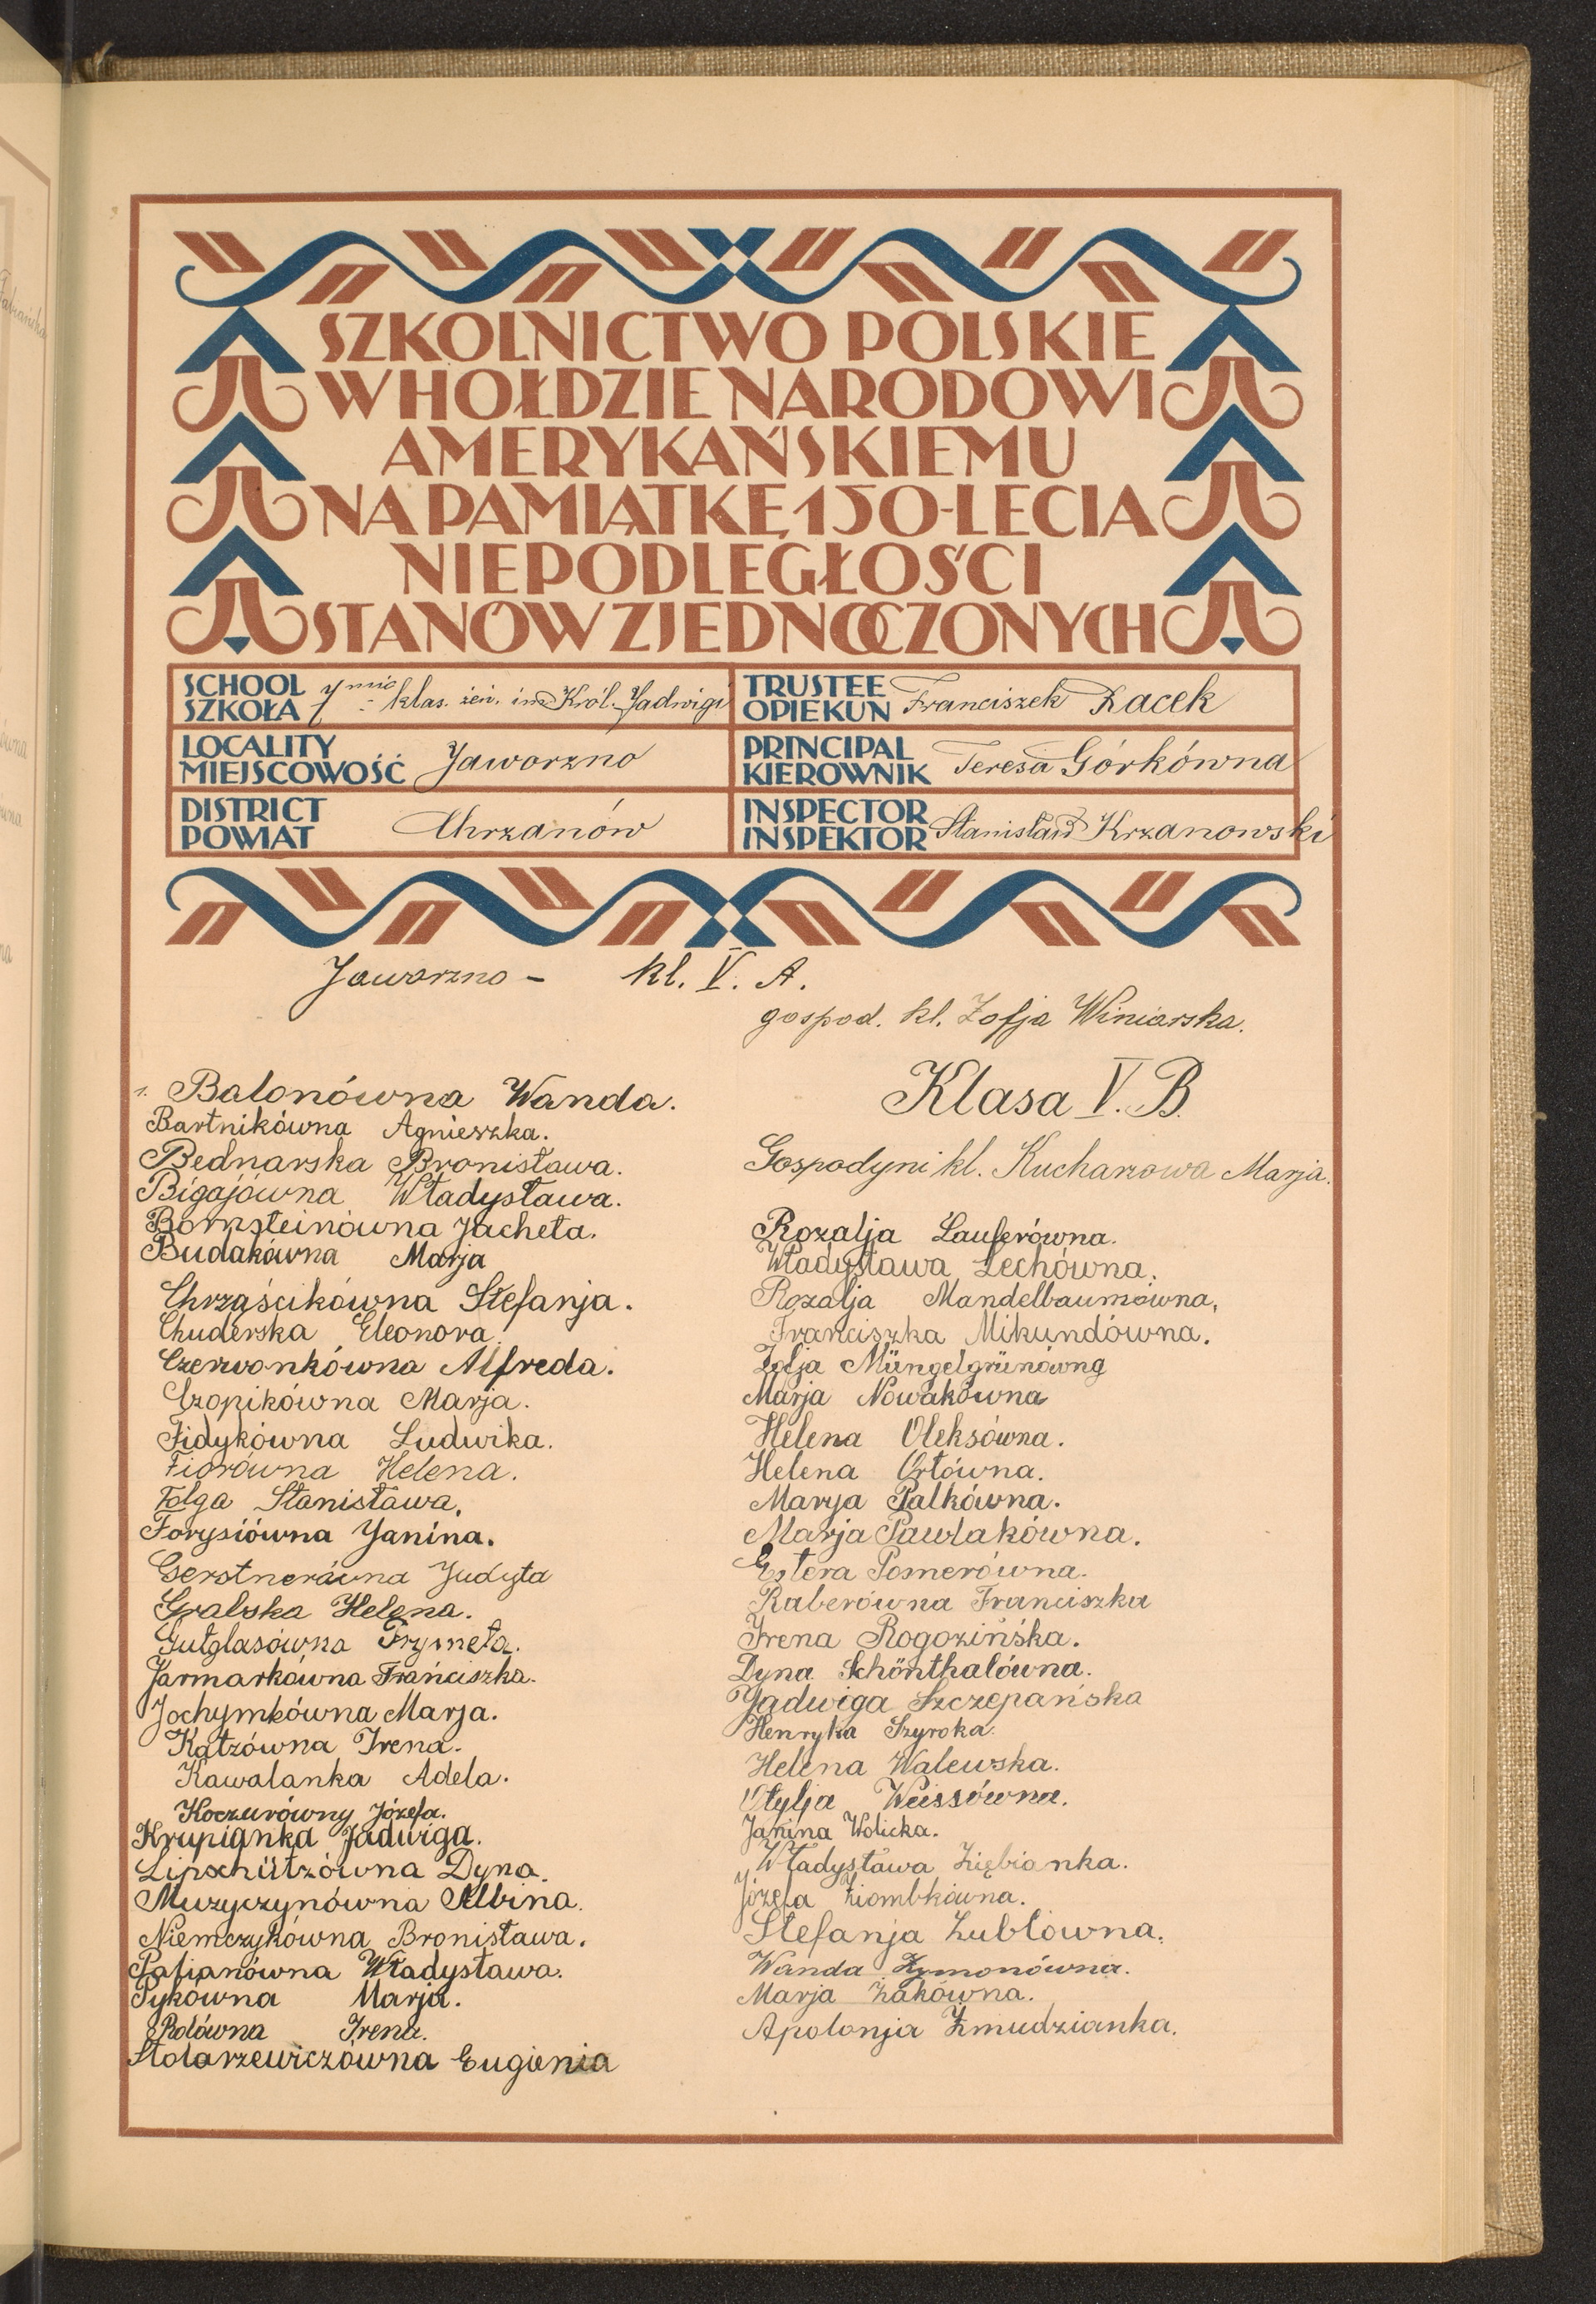 SZKOLNICTWO POLSKIE
W HOŁDZIE NARODOWI
AMERYKAŃSKIEMU
NA PAMIĄTKĘ 150-LECIA
NIEPODLEGŁOŚCI
STANÓW ZJEDNOCZONYCH
SCHOOL
SZKOŁA
7mio klas. żeń. im. Król. Jadwigi
TRUSTEE
OPIEKUN
Franciszek Racek
LOCALITY
MIEJSCOWOŚĆ
Jaworzno
PRINCIPAL
KIEROWNIK
Teresa Górkówna
DISTRICT
POWIAT
Chrzanów
INSPECTOR
INSPEKTOR
Stanisław Krzanowski
Jaworzno - kl. V. A.
gospod. kl. Zofja Winiarska.
1. Balonówna Wanda.
Bartnikówna Agnieszka.
Bednarska Bronisława.
Bigajówna Władysława.
Bornsteinówna Jacheta.
Budakówna Marja
Chrząścikówna Stefanja.
Chuderska Eleonora.
Czerwonkówna Alfreda.
Czopikówna Marja.
Fidykówna Ludwika.
Fiorówna Helena.
Folga Stanisława.
Forysiówna Janina.
Gerstnerówna Judyta
Gralska Helena.
Gutglasówna Frymeta.
Jarmarkówna Franciszka.
Jochymkówna Marja.
Katzówna Irena.
Kawalanka Adela.
Koczurówny Józefa.
Krupianka Jadwiga.
Lipschützówna Dyna.
Muzyczynówna Albina.
Niemczykówna Bronisława.
Pasianówna Władysława.
Pykówna Marja.
Rolówna Irena.
Stolarzewiczówna Eugienia
Klasa V. B.
Gospodyni kl. Kucharzowa Marja.
Rozalja Lauferówna.
Władysława Lechówna.
Rozalja Mandelbaumówna,
Franciszka Mikundówna.
Zofja Müngelgrünówna
Marja Nowakówna
Helena Oleksówna.
Helena Ortówna.
Marya Palkówna.
Marja Pawlakówna.
Estera Pomerówna.
Raberówna Franciszka
Irena Rogozińska.
Dyna Schönthalówna.
Jadwiga Szczepańska
Henryka Szyroka.
Helena Walewska.
Otylja Weissówna.
Janina Wolicka.
Władysława Ziębianka.
Józefa Ziombkówna.
Stefanja Zublówna.
Wanda Zymonówna.
Marja Żakówna.
Apolonja Żmudzianka.